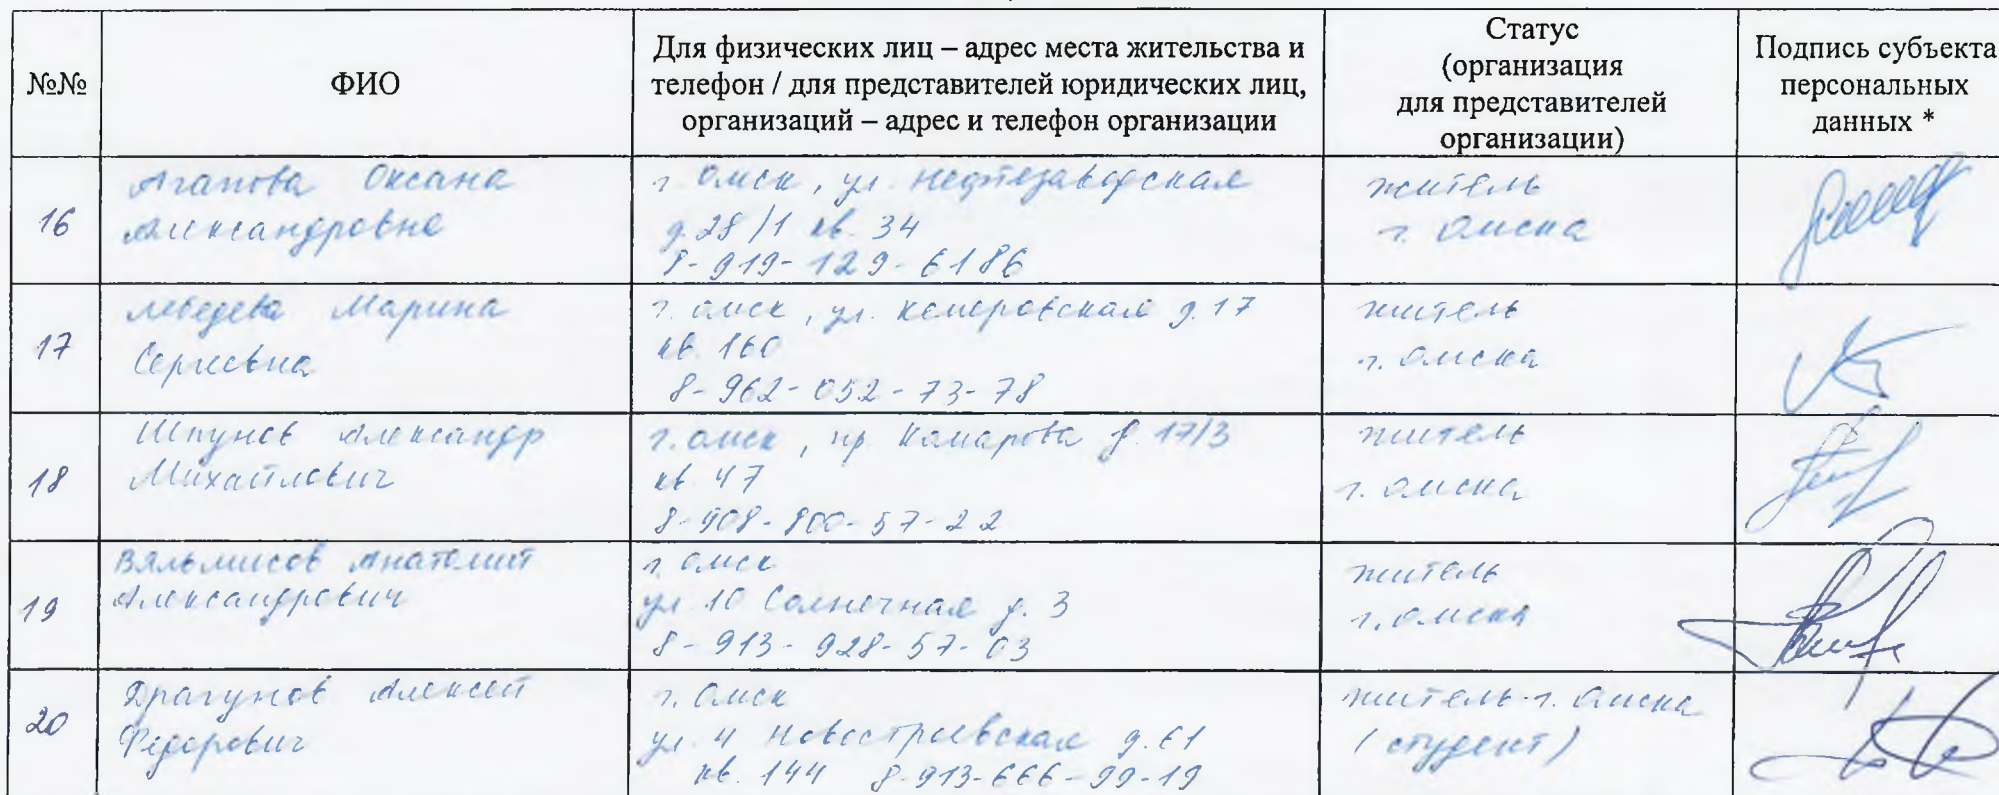 №№
ФИО
Для физических лиц – адрес места жительства и
телефон / для представителей юридических лиц,
организаций – адрес и телефон организации
Статус
(организация
для представителей
организации)
Подпись субъекта
персональных
данных *
16
Агапова Оксана
Александровна
г. Омск, ул. Нефтезаводская
д. 28/1 кв. 34
8-919-129-6186
житель
г. Омска
17
Лебедева Марина
Сергеевна
г. Омск, ул. Кемеровская д. 17
кв. 160
8-962-052-73-78
житель
г. Омска
18
Шпунов Александр
Михайлович
г. Омск, пр. Комарова д. 17/3
кв. 47
8-908-800-57-22
житель
г. Омска
19
Вяльмисов Анатолий
Александрович
г. Омск
ул. 10 Солнечная д. 3
8-913-928-57-03
житель
г. Омска
20
Драгунов Алексей
Фёдорович
г. Омск
ул. 4 Новостроевская д. 61
кв. 144 8-913-666-99-19
житель г. Омска
(студент)